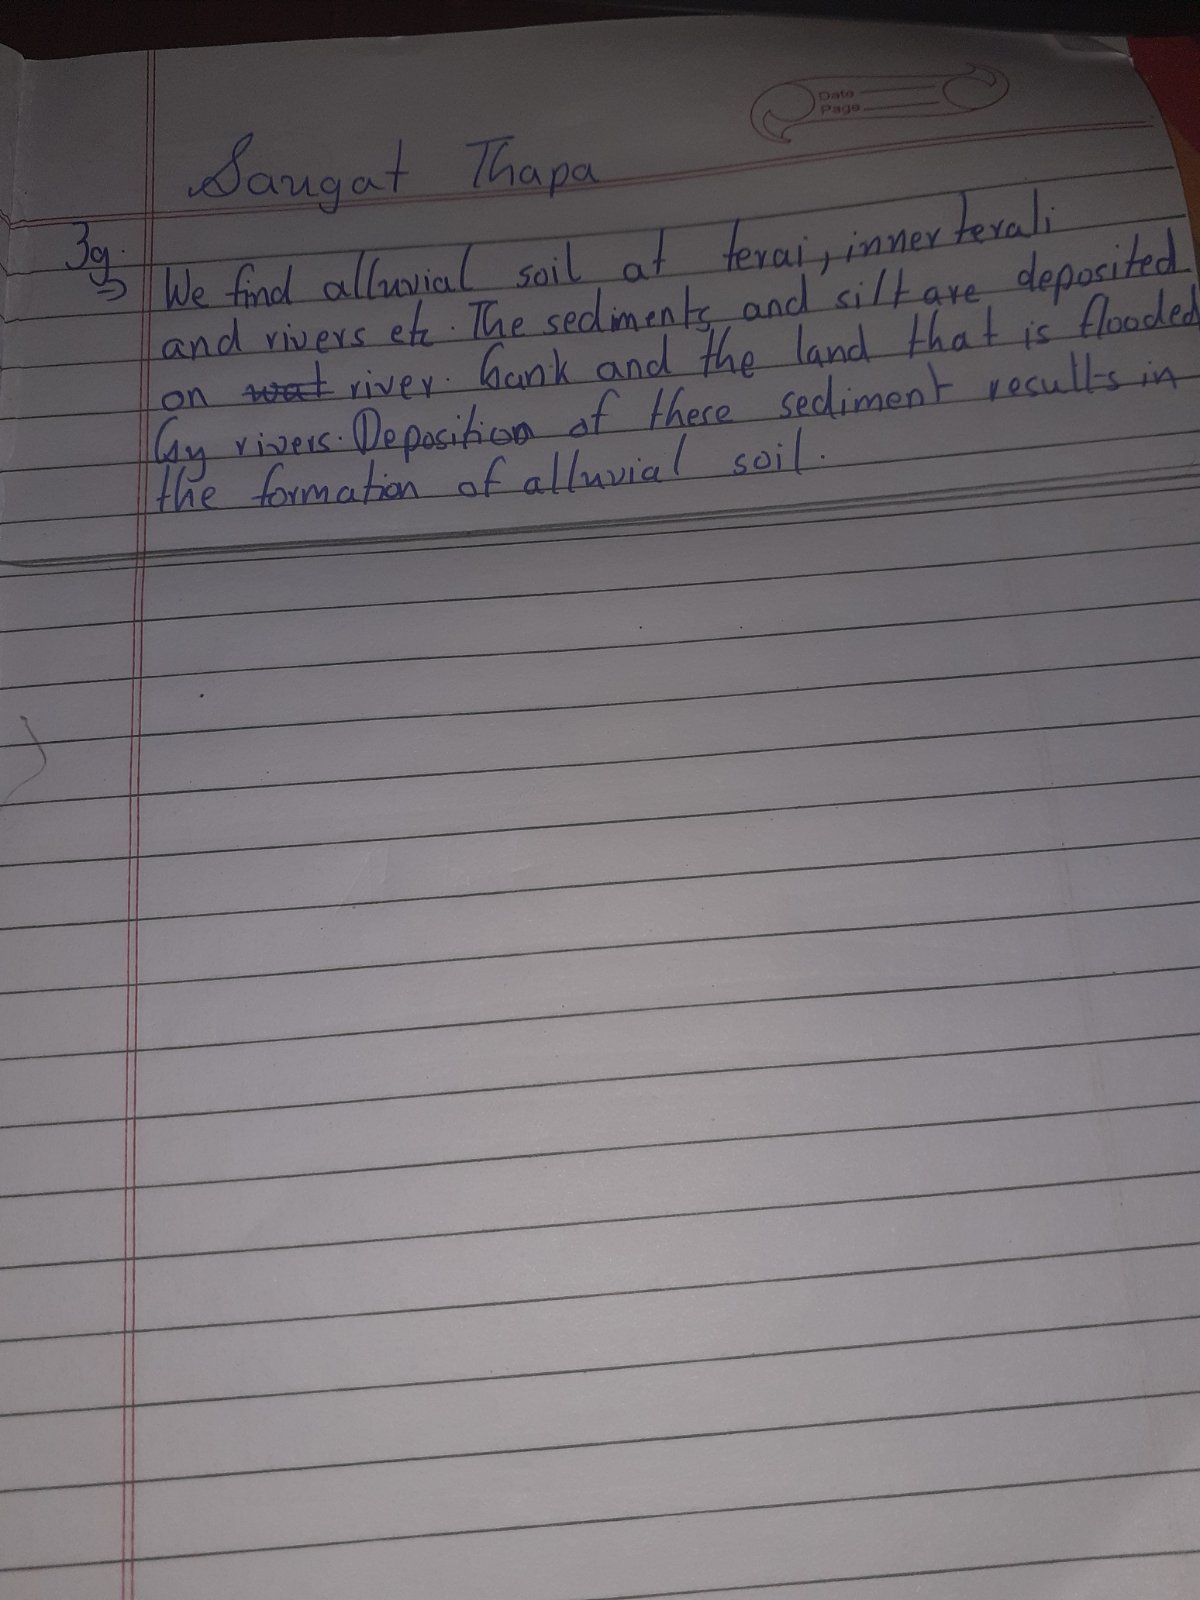 Date
Page
Saugat Thapa
3g.
⇒ We find alluvial soil at terai, inner terali
and rivers etc. The sediments and silt are deposited
on wat river. bank and the land that is flooded
by rivers. Deposition of these sediment results in
the formation of alluvial soil.